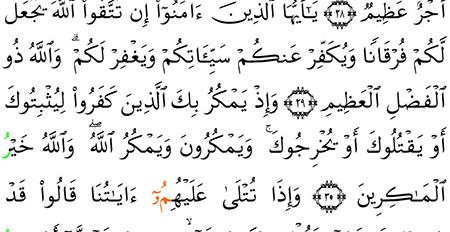 أَجْرٌ عَظِيمٌ ﴿٢٨﴾ يَٰٓأَيُّهَا ٱلَّذِينَ ءَامَنُوٓا۟ إِن تَتَّقُوا۟ ٱللَّهَ يَجْعَل
لَّكُمْ فُرْقَانًا وَيُكَفِّرْ عَنكُمْ سَيِّـَٔاتِكُمْ وَيَغْفِرْ لَكُمْ ۗ وَٱللَّهُ ذُو
ٱلْفَضْلِ ٱلْعَظِيمِ ﴿٢٩﴾ وَإِذْ يَمْكُرُ بِكَ ٱلَّذِينَ كَفَرُوا۟ لِيُثْبِتُوكَ
أَوْ يَقْتُلُوكَ أَوْ يُخْرِجُوكَ ۚ وَيَمْكُرُونَ وَيَمْكُرُ ٱللَّهُ ۖ وَٱللَّهُ خَيْرُ
ٱلْمَـٰكِرِينَ ﴿٣٠﴾ وَإِذَا تُتْلَىٰ عَلَيْهِمُۥٓ ءَايَـٰتُنَا قَالُوا۟ قَدْ